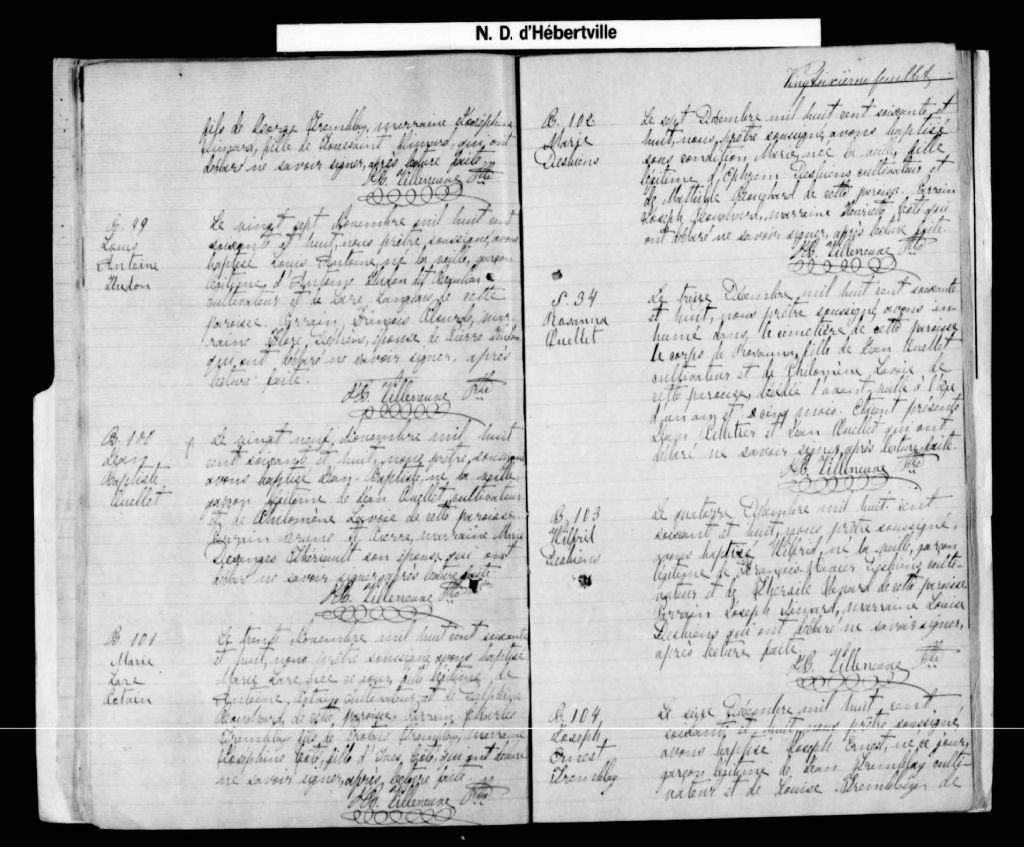 N. D. d'Hébertville
fils de George Tremblay, marraine Joséphine
Simard, fille de Toussaint Simard, qui ont
déclaré ne savoir signer, après lecture faite.
Villeneuve Ptre
B. 99
Louis
Antoine
Hudon
Le vingt sept Novembre mil huit cent
soixante et huit, nous prêtre soussigné, avons
baptisé Louis Antoine, né la veille, garçon
légitime d'Antoine Hudon dit Beaulieu
cultivateur et de Langlais de cette
paroisse. Parrain, François mar-
raine épouse de Pierre Hudon
qui ont déclaré ne savoir signer, après
lecture faite.
Villeneuve Ptre
B. 100
Jean
Baptiste
Ouellet
Le vingt neuf Novembre mil huit
cent soixante et huit, nous prêtre, soussigné
avons baptisé Jean-Baptiste, né la veille
garçon légitime de Jean Ouellet, cultivateur
et de Philomène Lavoie de cette paroisse
Parrain Pierre, marraine Marie
Desanges Thériault son épouse qui ont
déclaré ne savoir signer, après lecture faite
Villeneuve Ptre
B 101
Marie
Potvin
Le trente Novembre mil huit cent soixante
et huit, nous prêtre soussigné avons baptisé
Marie née ce jour, fille légitime de
Antoine Potvin cultivateur et de Delphine
Bouchard, de cette paroisse. Parrain, Charles
Tremblay fils de Tremblay, marraine
Joséphine Coté, fille d'Yves Coté, qui ont déclaré
ne savoir signer, après lecture faite
Villeneuve Ptre
Vingt sixième feuillet,
B. 102
Marie
Desbiens
Le sept Décembre mil huit cent soixante et
huit, nous, prêtre soussigné, avons baptisé
sous condition, Marie, née la veille, fille
légitime d'Ephrem Desbiens cultivateur et
de Mathilde Bouchard de cette paroisse. Parrain
Joseph Bouchard, marraine Henriette Coté qui
ont déclaré ne savoir signer, après lecture faite.
Villeneuve Ptre
S. 34
Rosanna
Ouellet
Le treize Décembre mil huit cent soixante
et huit, nous prêtre soussigné, avons in-
humé dans le cimetière de cette paroisse
le corps de Rosanna, fille de Jean Ouellet
cultivateur et de Philomène Lavoie de
cette paroisse, décédée l'avant veille à l'âge
d'un an et cinq mois. Etaient présents
Jean Pelletier et Jean Ouellet qui ont
déclaré ne savoir signer, après lecture faite.
Villeneuve Ptre
B. 103
Wilfrid
Desbiens
Le quatorze Décembre mil huit cent
soixante et huit, nous prêtre soussigné,
avons baptisé Wilfrid, né la veille, garçon
légitime de François-Xavier Desbiens culti-
vateur et de de cette paroisse
Parrain Joseph Simard, marraine Louise
Desbiens qui ont déclaré ne savoir signer,
après lecture faite.
Villeneuve Ptre
B. 104
Joseph
Ernest
Tremblay
Le seize Décembre mil huit cent
soixante et huit, nous prêtre soussigné
avons baptisé Joseph Ernest, né ce jour,
garçon légitime de Jean Tremblay culti-
vateur et de Louise Tremblay de